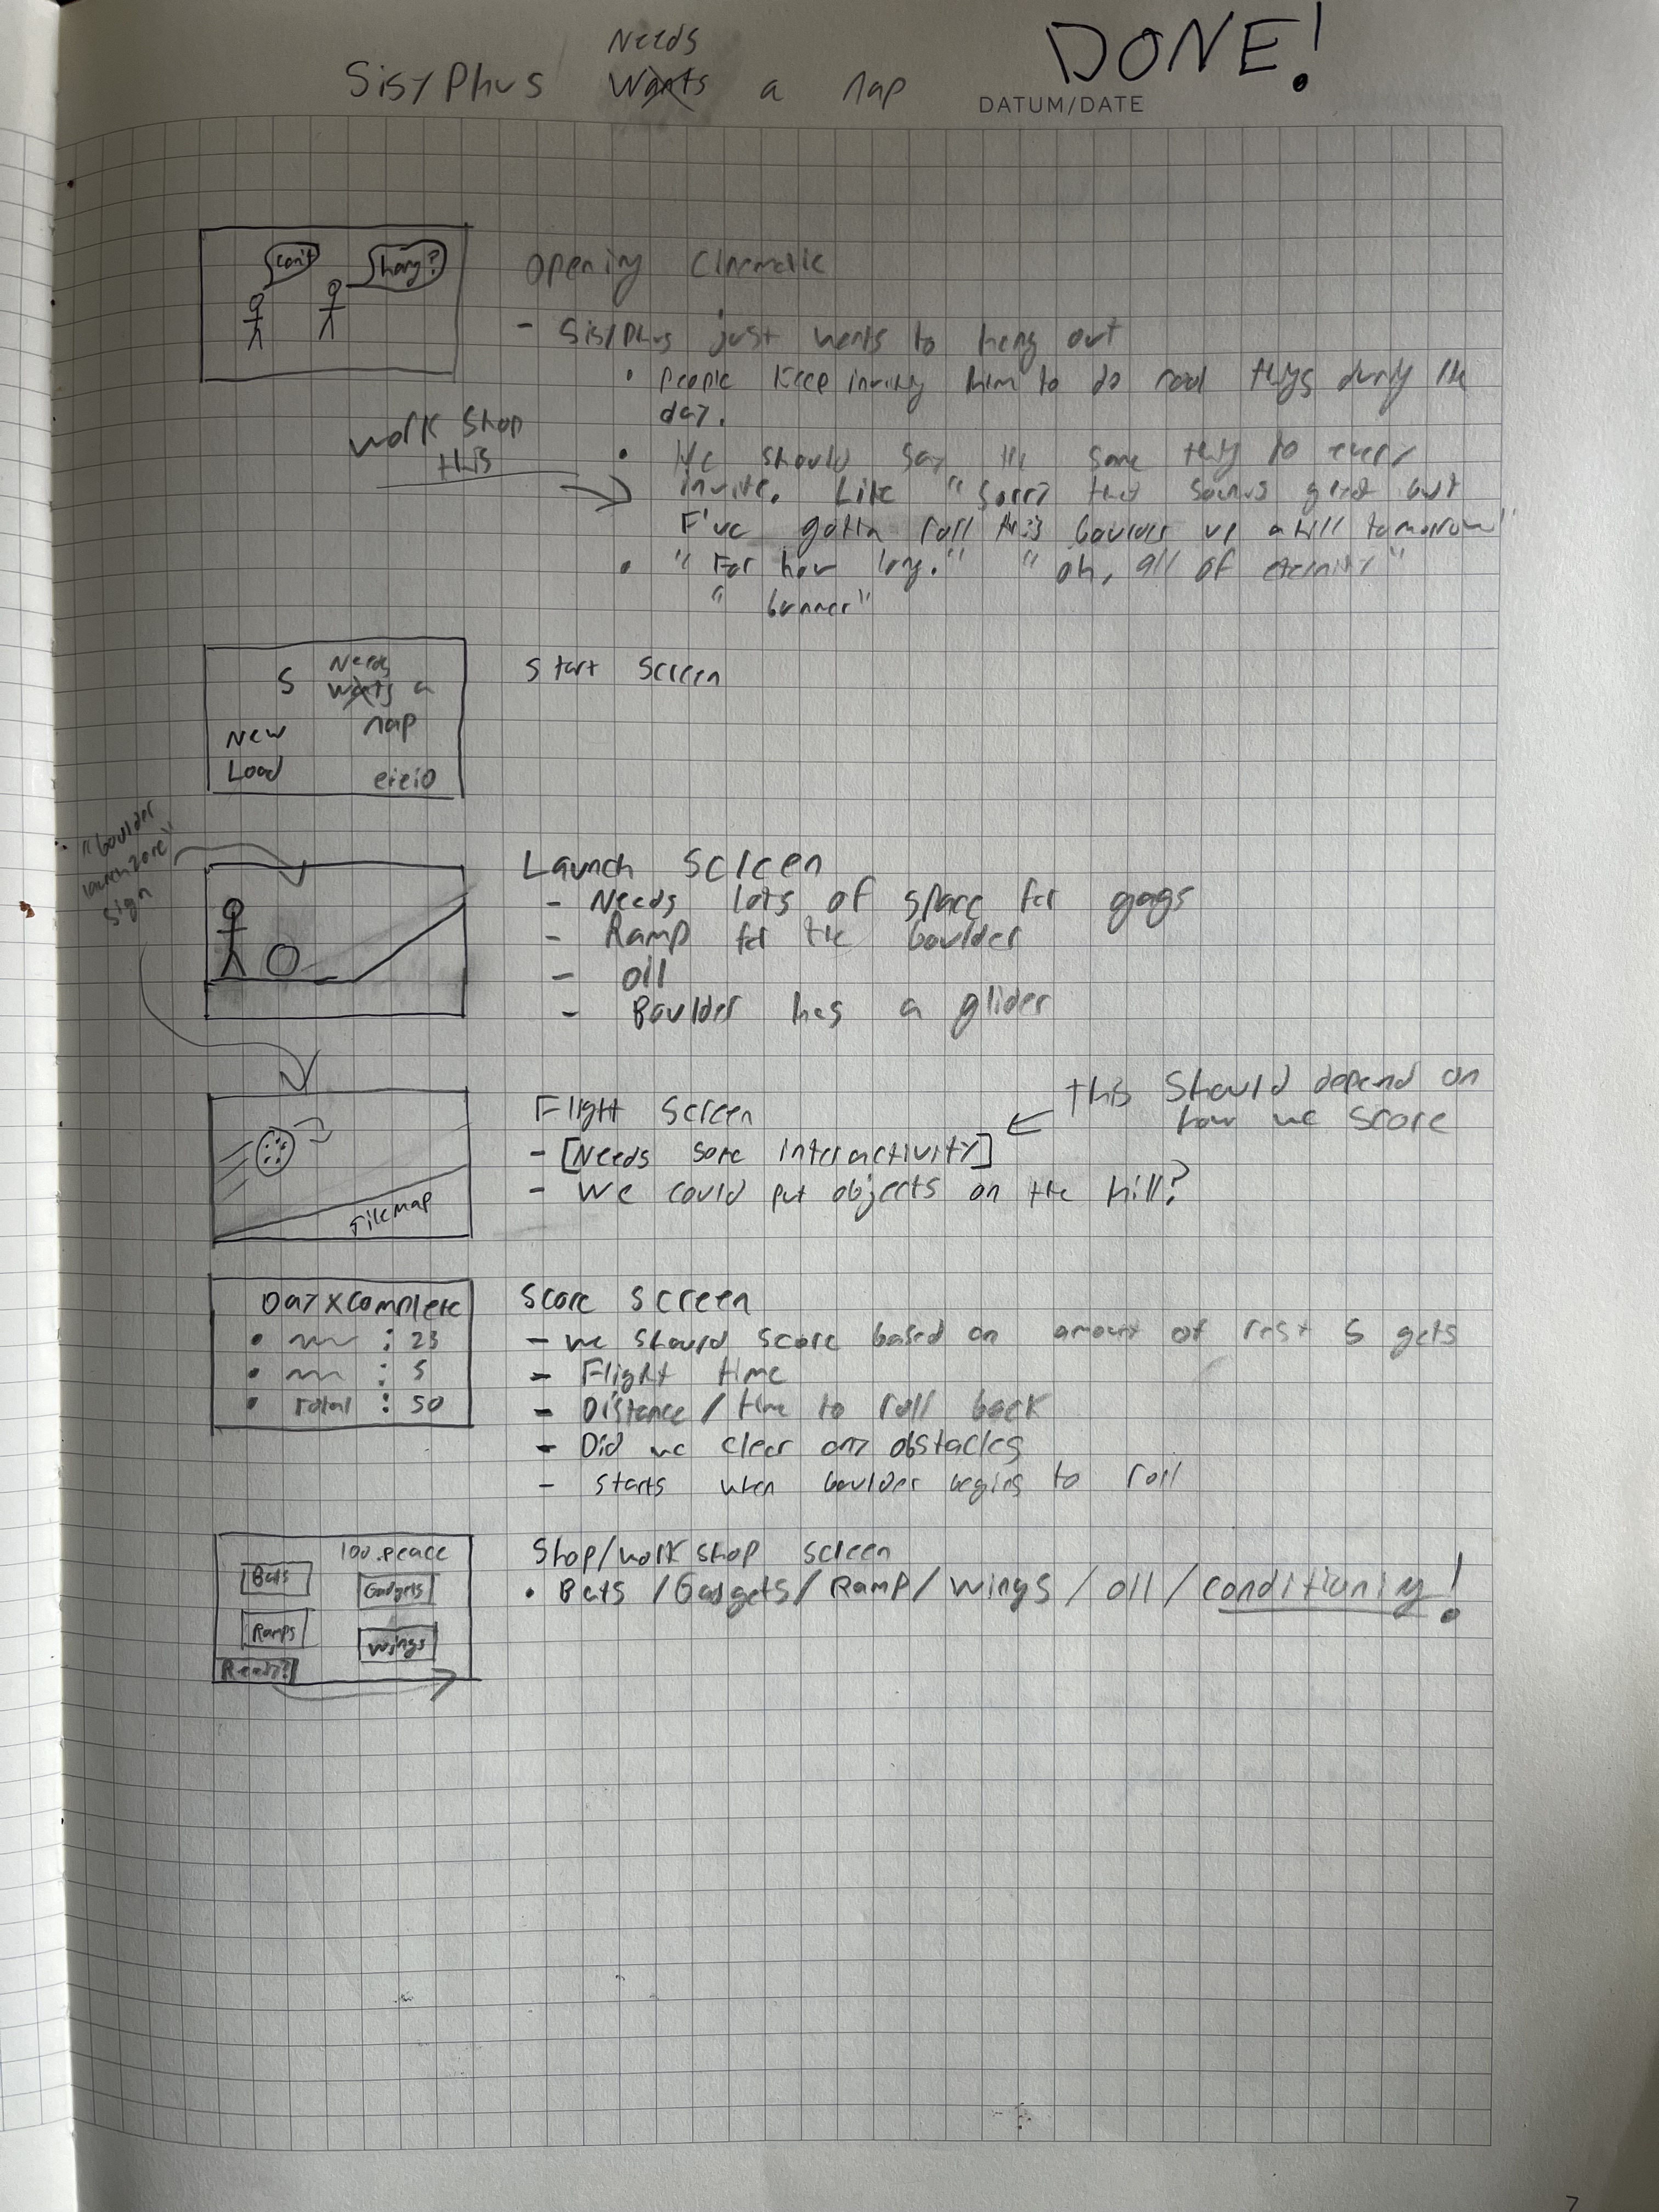 Needs
Sisyphus Wants a nap
DONE!
DATUM/DATE
can't
hang?
Opening Cinematic
- Sisyphus just wants to hang out
• People Keep inviting him to do rad things during the
day.
work shop
this
• He should say the same thing to every
invite. Like "Sorry that sounds great but
I've gotta roll this boulder up a hill tomorrow"
• "For how long." "oh, all of eternity"
"bummer"
S Needs
Wants a
nap
New
Load
eieio
Start Screen
"boulder
launch zone"
sign
Launch Screen
- Needs lots of space for gags
- Ramp for the boulder
- oil
- Boulder has a glider
TileMap
Flight Screen
- [Needs some interactivity]
this should depend on
how we score
- We could put objects on the hill?
Day X Complete
• : 23
• : 5
• Total : 50
Score Screen
- we should score based on amount of rest S gets
- Flight time
- Distance / time to roll back
- Did we clear any obstacles
- starts when boulder begins to roll
100.peace
Bats
Gadgets
Ramps
Wings
Ready?
Shop/work shop screen
• Bats / Gadgets / Ramp / wings / oil / conditioning!
7